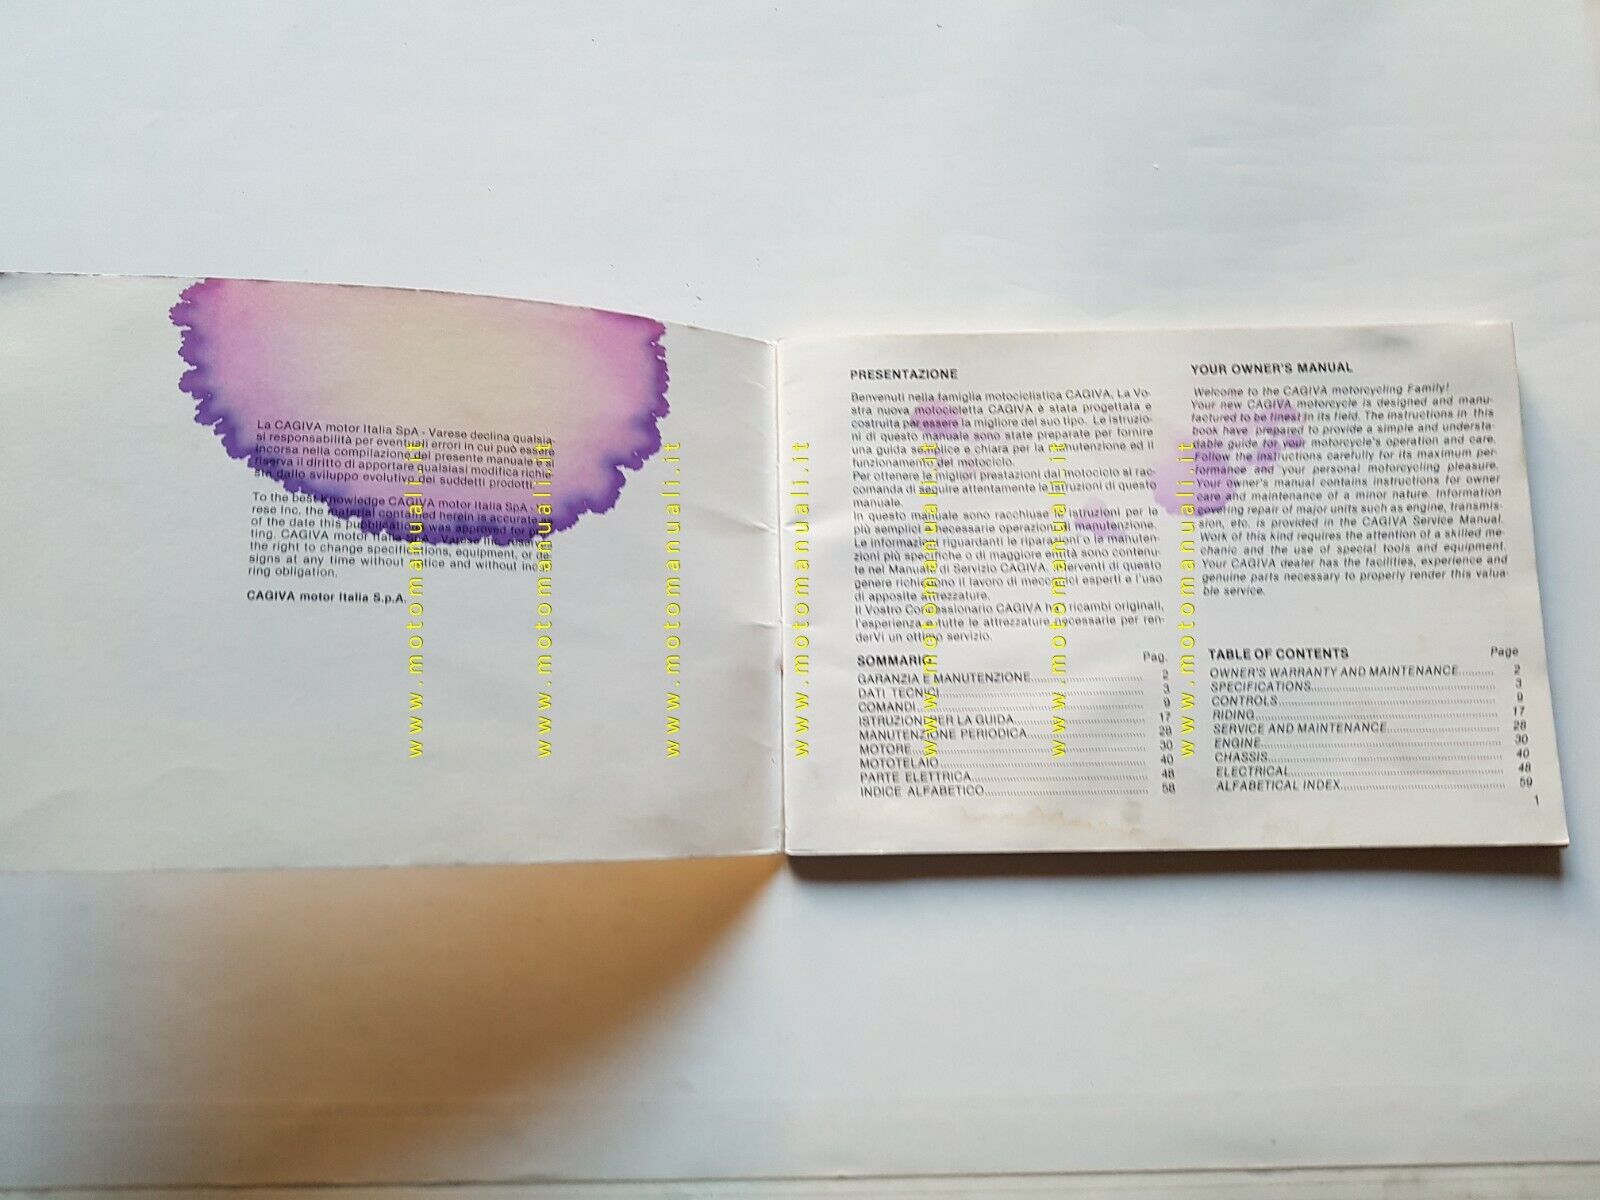 La CAGIVA motor Italia SpA - Varese declina qualsia-
si responsabilità per eventuali errori in cui può essere
incorsa nella compilazione del presente manuale e si
riserva il diritto di apportare qualsiasi modifica richie-
sta dallo sviluppo evolutivo dei suddetti prodotti.
To the best Knowledge CAGIVA motor Italia SpA - Va-
rese Inc, the material contained herein is accurate as
of the date this publication was approved for prin-
ting. CAGIVA motor Italia SpA - Varese Inc. reserves
the right to change specifications, equipment, or de-
signs at any time without notice and without incur-
ring obligation.
CAGIVA motor Italia S.p.A.
PRESENTAZIONE
Benvenuti nella famiglia motociclistica CAGIVA. La Vo-
stra nuova motocicletta CAGIVA è stata progettata e
costruita per essere la migliore del suo tipo. Le istruzio-
ni di questo manuale sono state preparate per fornire
una guida semplice e chiara per la manutenzione ed il
funzionamento del motociclo.
Per ottenere le migliori prestazioni dal motociclo si rac-
comanda di seguire attentamente le istruzioni di questo
manuale.
In questo manuale sono racchiuse le istruzioni per le
più semplici e necessarie operazioni di manutenzione.
Le informazioni riguardanti le riparazioni o le manuten-
zioni più specifiche o di maggiore entità sono contenu-
te nel Manuale di Servizio CAGIVA. Interventi di questo
genere richiedono il lavoro di meccanici esperti e l'uso
di apposite attrezzature.
Il Vostro Concessionario CAGIVA ha i ricambi originali,
l'esperienza e tutte le attrezzature necessarie per ren-
derVi un ottimo servizio.
SOMMARIO Pag.
GARANZIA E MANUTENZIONE 2
DATI TECNICI 3
COMANDI 9
ISTRUZIONI PER LA GUIDA 17
MANUTENZIONE PERIODICA 28
MOTORE 30
MOTOTELAIO 40
PARTE ELETTRICA 48
INDICE ALFABETICO 58
YOUR OWNER'S MANUAL
Welcome to the CAGIVA motorcycling Family!
Your new CAGIVA motorcycle is designed and manu-
factured to be finest in its field. The instructions in this
book have prepared to provide a simple and understa-
dable guide for your motorcycle's operation and care.
Follow the instructions carefully for its maximum per-
formance and your personal motorcycling pleasure.
Your owner's manual contains instructions for owner
care and maintenance of a minor nature. Information
covering repair of major units such as engine, transmis-
sion, etc. is provided in the CAGIVA Service Manual.
Work of this kind requires the attention of a skilled me-
chanic and the use of special tools and equipment.
Your CAGIVA dealer has the facilities, experience and
genuine parts necessary to properly render this valua-
ble service.
TABLE OF CONTENTS Page
OWNER'S WARRANTY AND MAINTENANCE 2
SPECIFICATIONS 3
CONTROLS 9
RIDING 17
SERVICE AND MAINTENANCE 28
ENGINE 30
CHASSIS 40
ELECTRICAL 48
ALFABETICAL INDEX 59
1
www.motomanuali.it
www.motomanuali.it
www.motomanuali.it
www.motomanuali.it
www.motomanuali.it
www.motomanuali.it
www.motomanuali.it